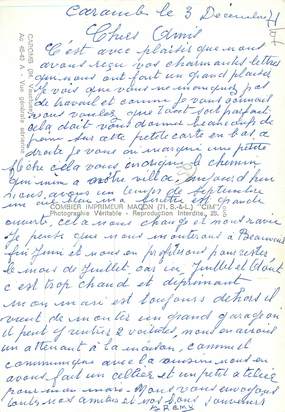 Caramb le 3 Décembre 71
Chers Amis
C'est avec plaisir que nous
avons reçu vos charmantes lettres
qui nous ont fait un grand plaisir
je vois que vous ne manquez pas
de travail et comme je vous connais
vous voulez que tout soit parfait
cela doit vous donner beaucoup de
peine sur cette petite carte en bas a
droite je vous en marqué une petite
flèche cela vous indique le chemin
qui mène a notre villa, aujourd'hui
nous avons un temps de Septembre
un ciel bleu une fenêtre est grande
ouvert, cela nous change et nous ravi
Je pense que nous monterons à Beauvais
fin Juin et nous en profitons pour rester
le mois de Juillet, car ici Juillet et Août
c'est trop chaud et déprimant
mon mari est toujours dehors il
vient de monter un grand garage on
il peut y rentrer 2 voitures, nous en avions
un attenant à la maison, comme il
communique avec la cuisine nous en
avons fait un cellier et un petit atelier
pour mon mari. Nous vous envoyons
toutes nos amitiés et nos bons souvenirs
CAROMB (84 Vaucluse)
Ac 45-43 A - Vue générale aérienne
COMBIER IMPRIMEUR MACON (S.A.L.) "CIM"
Photographie Véritable - Reproduction Interdite